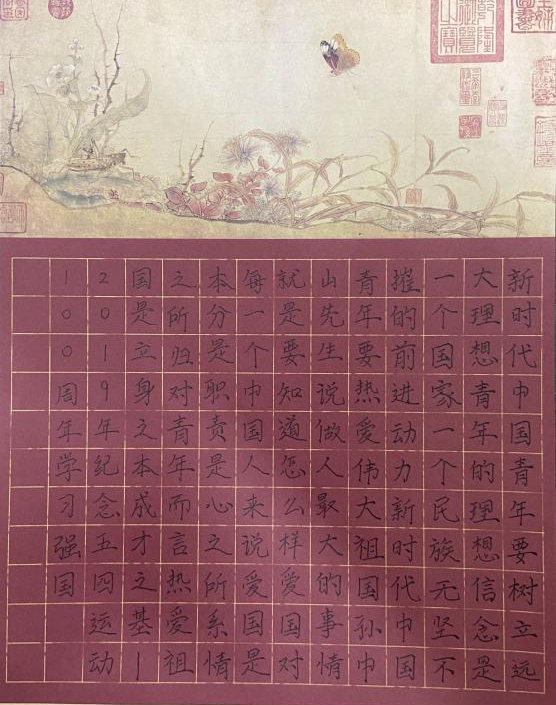 乾隆御覽之寶
新时代中国青年要树立远
大理想青年的理想信念是
一个国家一个民族无坚不
摧的前进动力新时代中国
青年要热爱伟大祖国孙中
山先生说做人最大的事情
就是要知道怎么样爱国对
每一个中国人来说爱国是
本分是职责是心之所系情
之所归对青年而言热爱祖
国是立身之本成才之基—
2019年纪念五四运动
100周年学习强国